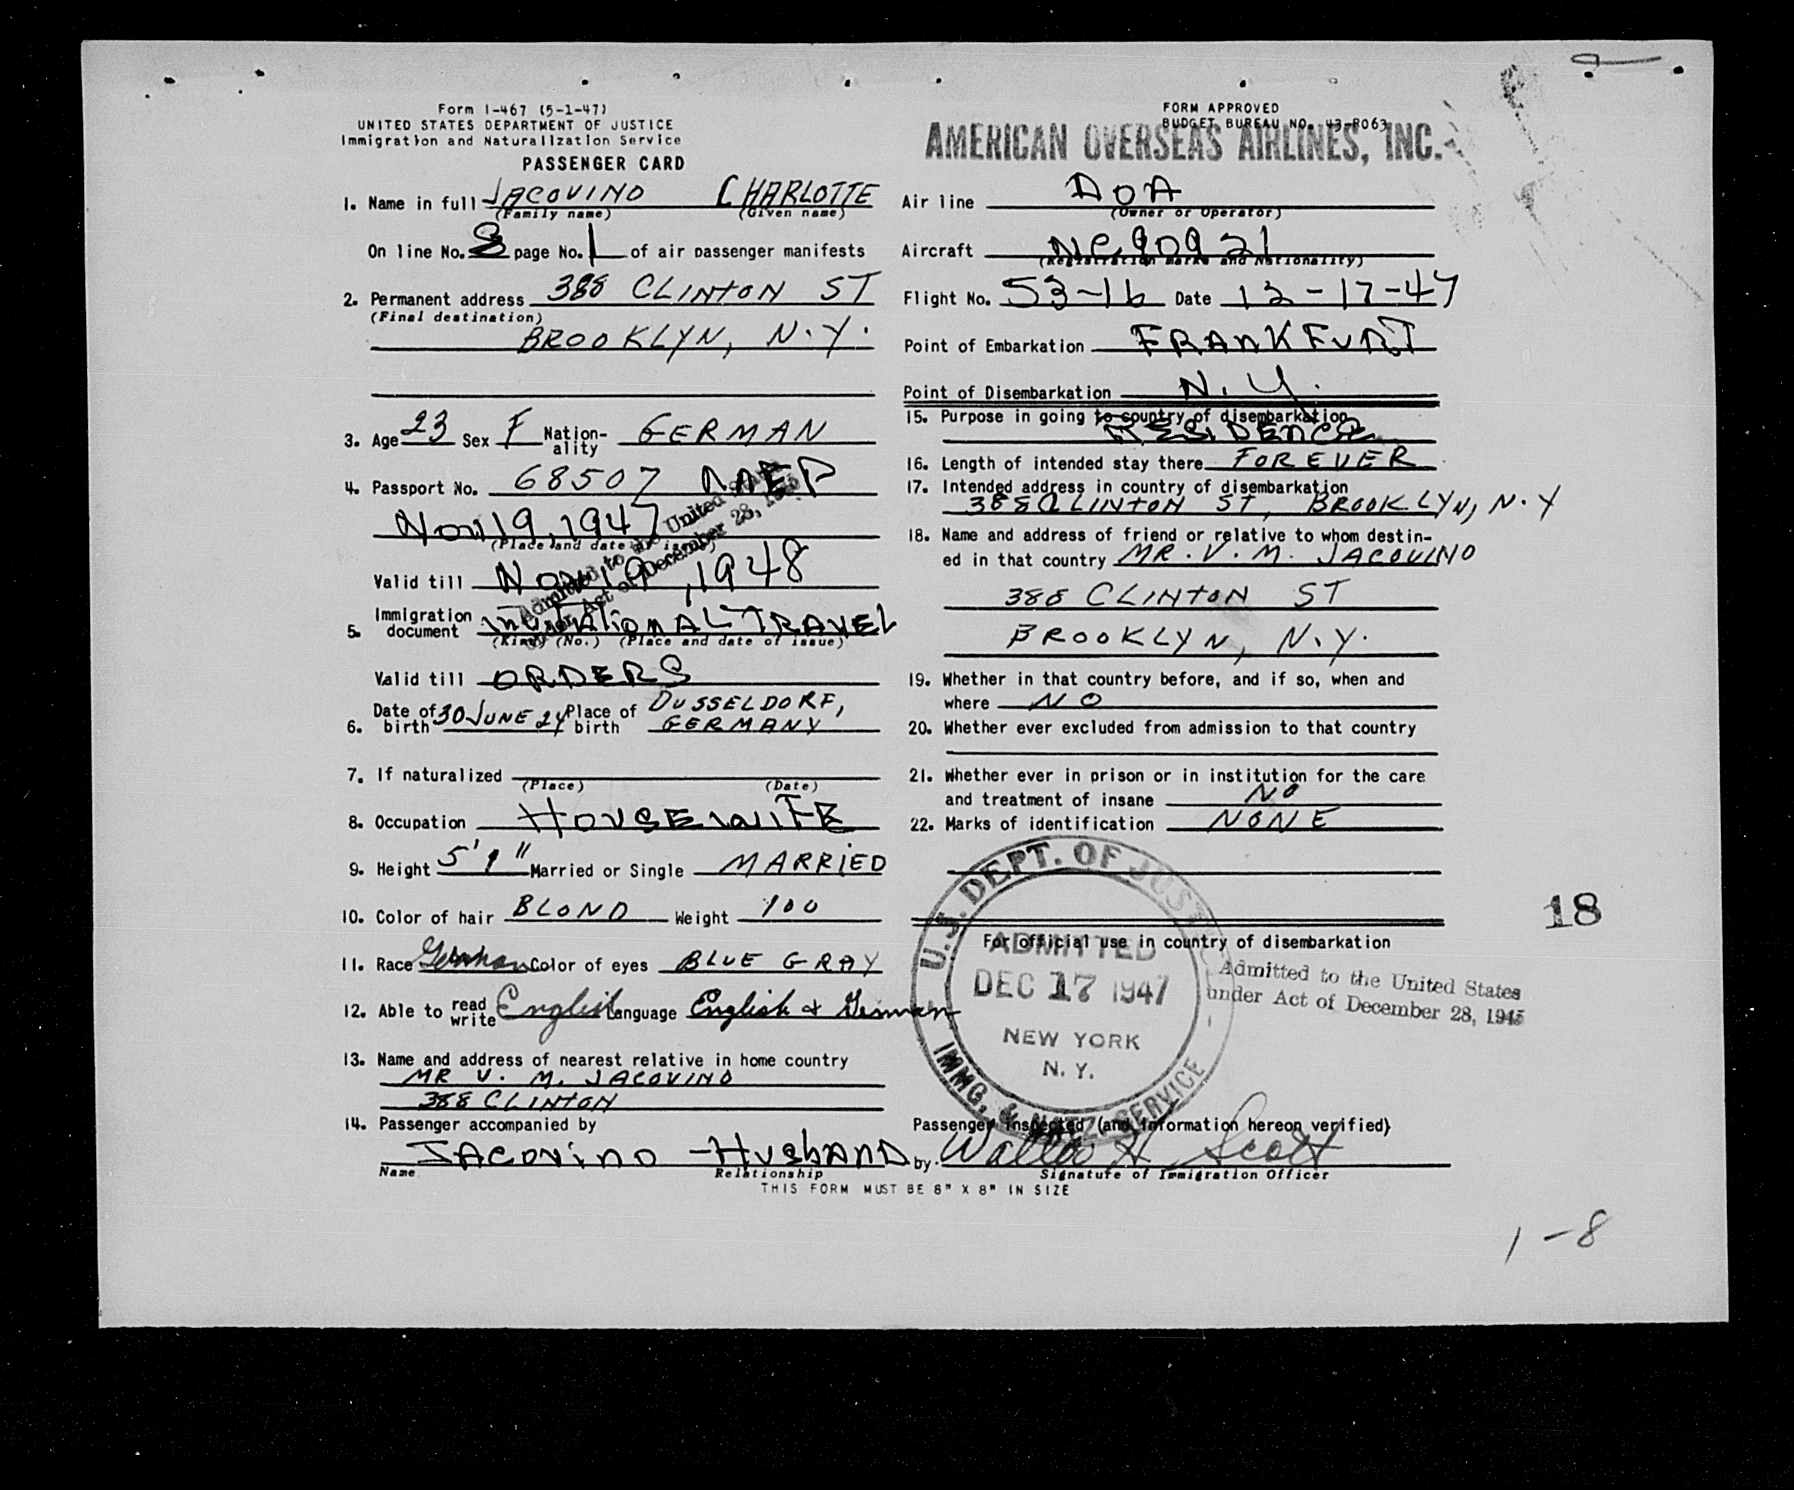 Form I-467 (5-1-47)
UNITED STATES DEPARTMENT OF JUSTICE
Immigration and Naturalization Service
PASSENGER CARD
1. Name in full JACOVINO CHARLOTTE
(Family name) (Given name)
On line No. 8 page No. 1 of air passenger manifests
2. Permanent address 388 CLINTON ST
(Final destination)
BROOKLYN, N.Y.
3. Age 23 Sex F Nation-ality GERMAN
4. Passport No. 68507
Nov 19, 1947
(Place and date of issue)
Valid till Nov 19, 1948
Admitted to the United States
under Act of December 28, 1945
5. Immigration document INVITATIONAL TRAVEL
(Kind) (No.) (Place and date of issue)
Valid till ORDERS
6. Date of birth 30 JUNE 24 Place of birth DUSSELDORF, GERMANY
7. If naturalized
(Place) (Date)
8. Occupation HOUSEWIFE
9. Height 5' 1" Married or Single MARRIED
10. Color of hair BLOND Weight 100
11. Race German Color of eyes BLUE GRAY
12. Able to read write English Language English & German
13. Name and address of nearest relative in home country
MR V. M. JACOVINO
388 CLINTON
14. Passenger accompanied by
JACOVINO - HUSBAND
Name Relationship
THIS FORM MUST BE 8" X 8" IN SIZE
FORM APPROVED
BUDGET BUREAU NO. 43-R063
AMERICAN OVERSEAS AIRLINES, INC.
Air line AOA
(Owner or Operator)
Aircraft NC 90921
(Registration marks and Nationality)
Flight No. 53-16 Date 12-17-47
Point of Embarkation FRANKFURT
Point of Disembarkation N.Y.
15. Purpose in going to country of disembarkation
RESIDENCE
16. Length of intended stay there FOREVER
17. Intended address in country of disembarkation
388 CLINTON ST, BROOKLYN, N.Y
18. Name and address of friend or relative to whom destin-
ed in that country MR. V. M. JACOVINO
388 CLINTON ST
BROOKLYN, N.Y.
19. Whether in that country before, and if so, when and
where NO
20. Whether ever excluded from admission to that country
21. Whether ever in prison or in institution for the care
and treatment of insane NO
22. Marks of identification NONE
For official use in country of disembarkation
U.S. DEPT. OF JUSTICE
ADMITTED
DEC 17 1947
NEW YORK
N. Y.
IMMG. & NATZ. SERVICE
Admitted to the United States
under Act of December 28, 1945
18
Passenger inspected (and information hereon verified)
by Walter H Scott
Signature of Immigration Officer
1-8